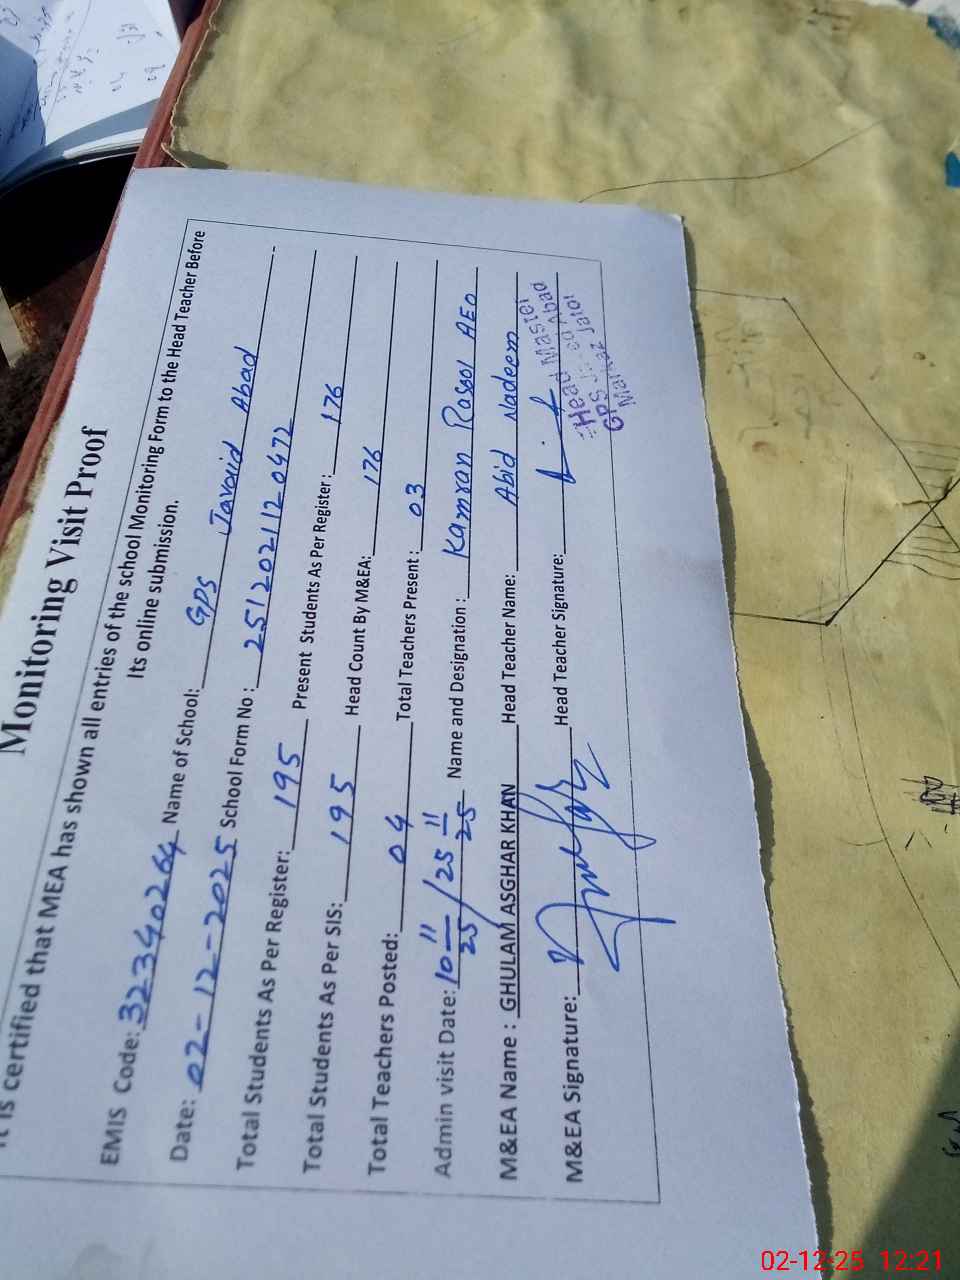 Monitoring Visit Proof
It is certified that MEA has shown all entries of the school Monitoring Form to the Head Teacher Before
Its online submission.
EMIS Code: 32340264 Name of School: GPS Javaid Abad
Date: 02-12-2025 School Form No : 25120211120472
Total Students As Per Register: 195 Present Students As Per Register: 176
Total Students As Per SIS: 195 Head Count By M&EA: 176
Total Teachers Posted: 04 Total Teachers Present: 03
Admin visit Date: 10 11/25 / 25 11/25 Name and Designation : Kamran Rasool AEO
M&EA Name : GHULAM ASGHAR KHAN Head Teacher Name: Abid Nadeem
M&EA Signature: Head Teacher Signature:
Head Master
GPS Abad
Markaz Jatoi
02-12-25 12:21